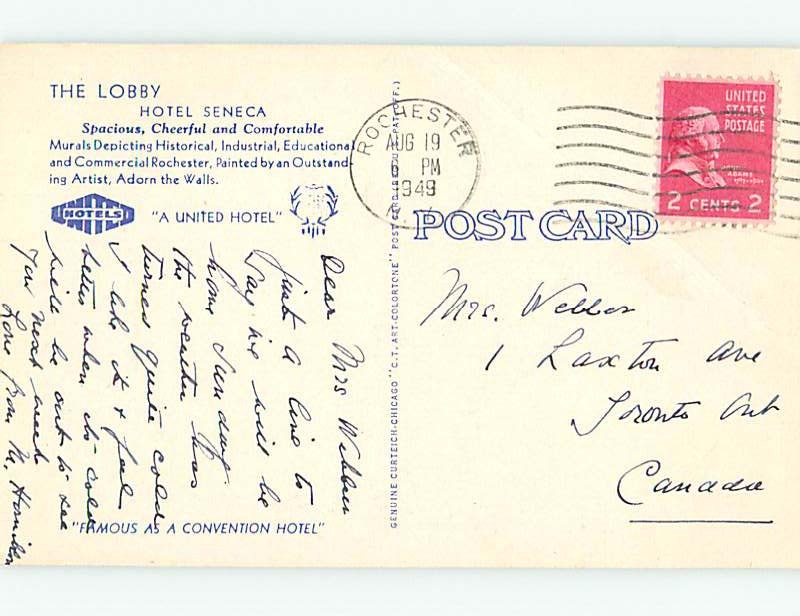 THE LOBBY
HOTEL SENECA
Spacious, Cheerful and Comfortable
Murals Depicting Historical, Industrial, Educational
and Commercial Rochester, Painted by an Outstand-
ing Artist, Adorn the Walls.
HOTELS
"A UNITED HOTEL"
Dear Mrs Webber
Just a line to
say we will be
home Sunday.
the weather has
turned quite cold
I like it & feel
better when its cold
will be out to see
you next week
Love from M. Hamilton
"FAMOUS AS A CONVENTION HOTEL"
GENUINE CURTEICH-CHICAGO "C.T. ART-COLORTONE" POST CARD (REG. U.S. PAT. OFF.)
ROCHESTER
AUG 19
6 PM
1949
N.Y.
UNITED
STATES
POSTAGE
ADAMS
2 CENTS 2
POST CARD
Mrs. Webber
1 Laxton Ave
Toronto Ont
Canada